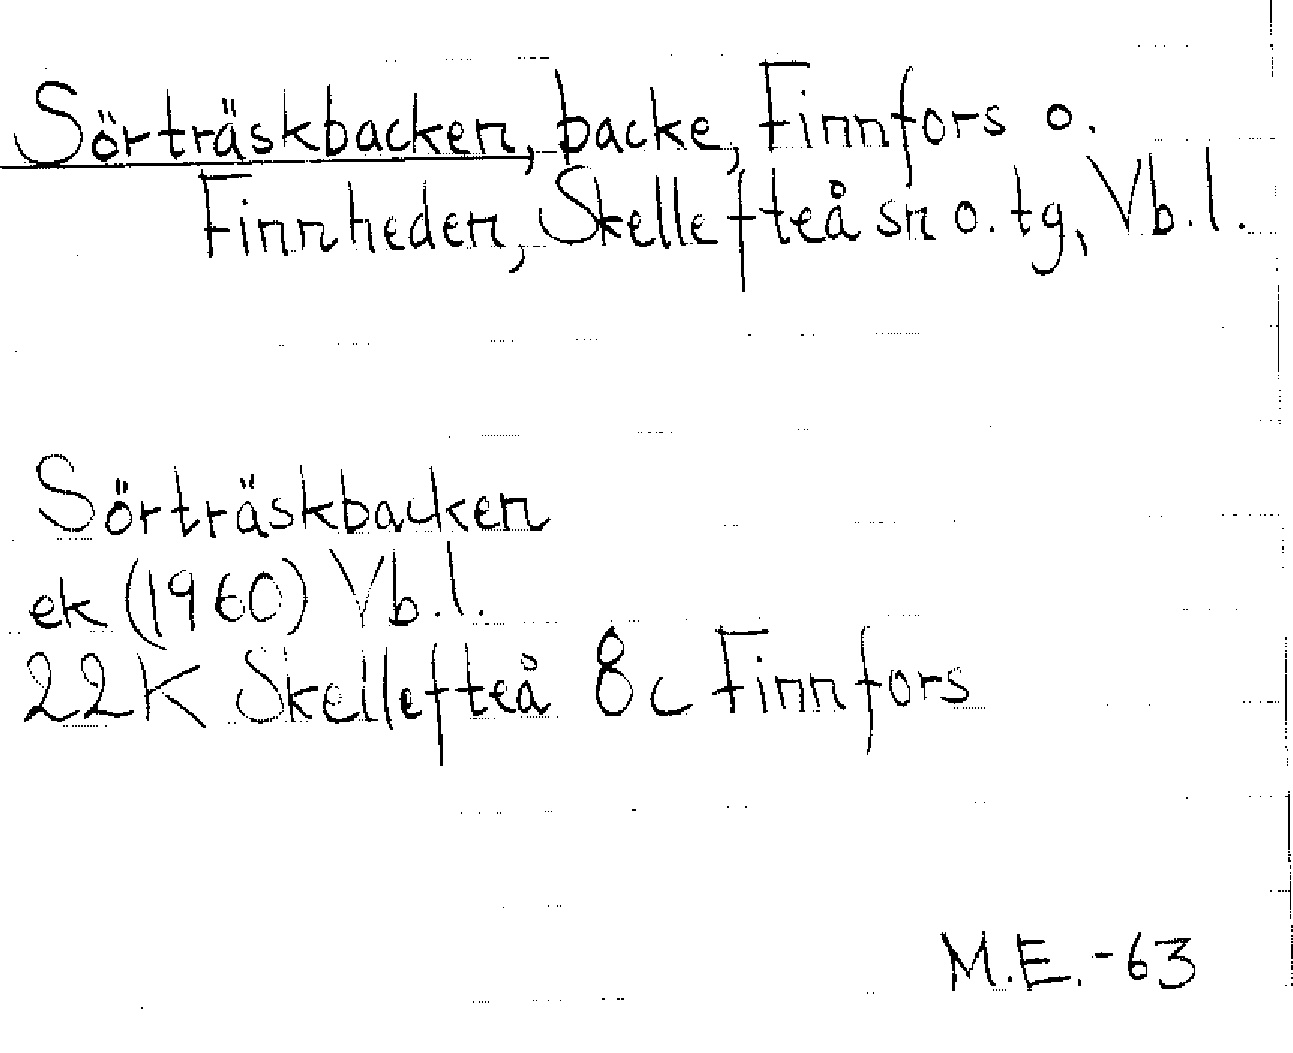 Sörträskbacken, backe, Finnfors o.
Finnheden, Skellefteå sn o. tg, Vb.l.
Sörträskbacken
ek (1960) Vb.l.
22K Skellefteå 8c Finnfors
M.E.-63